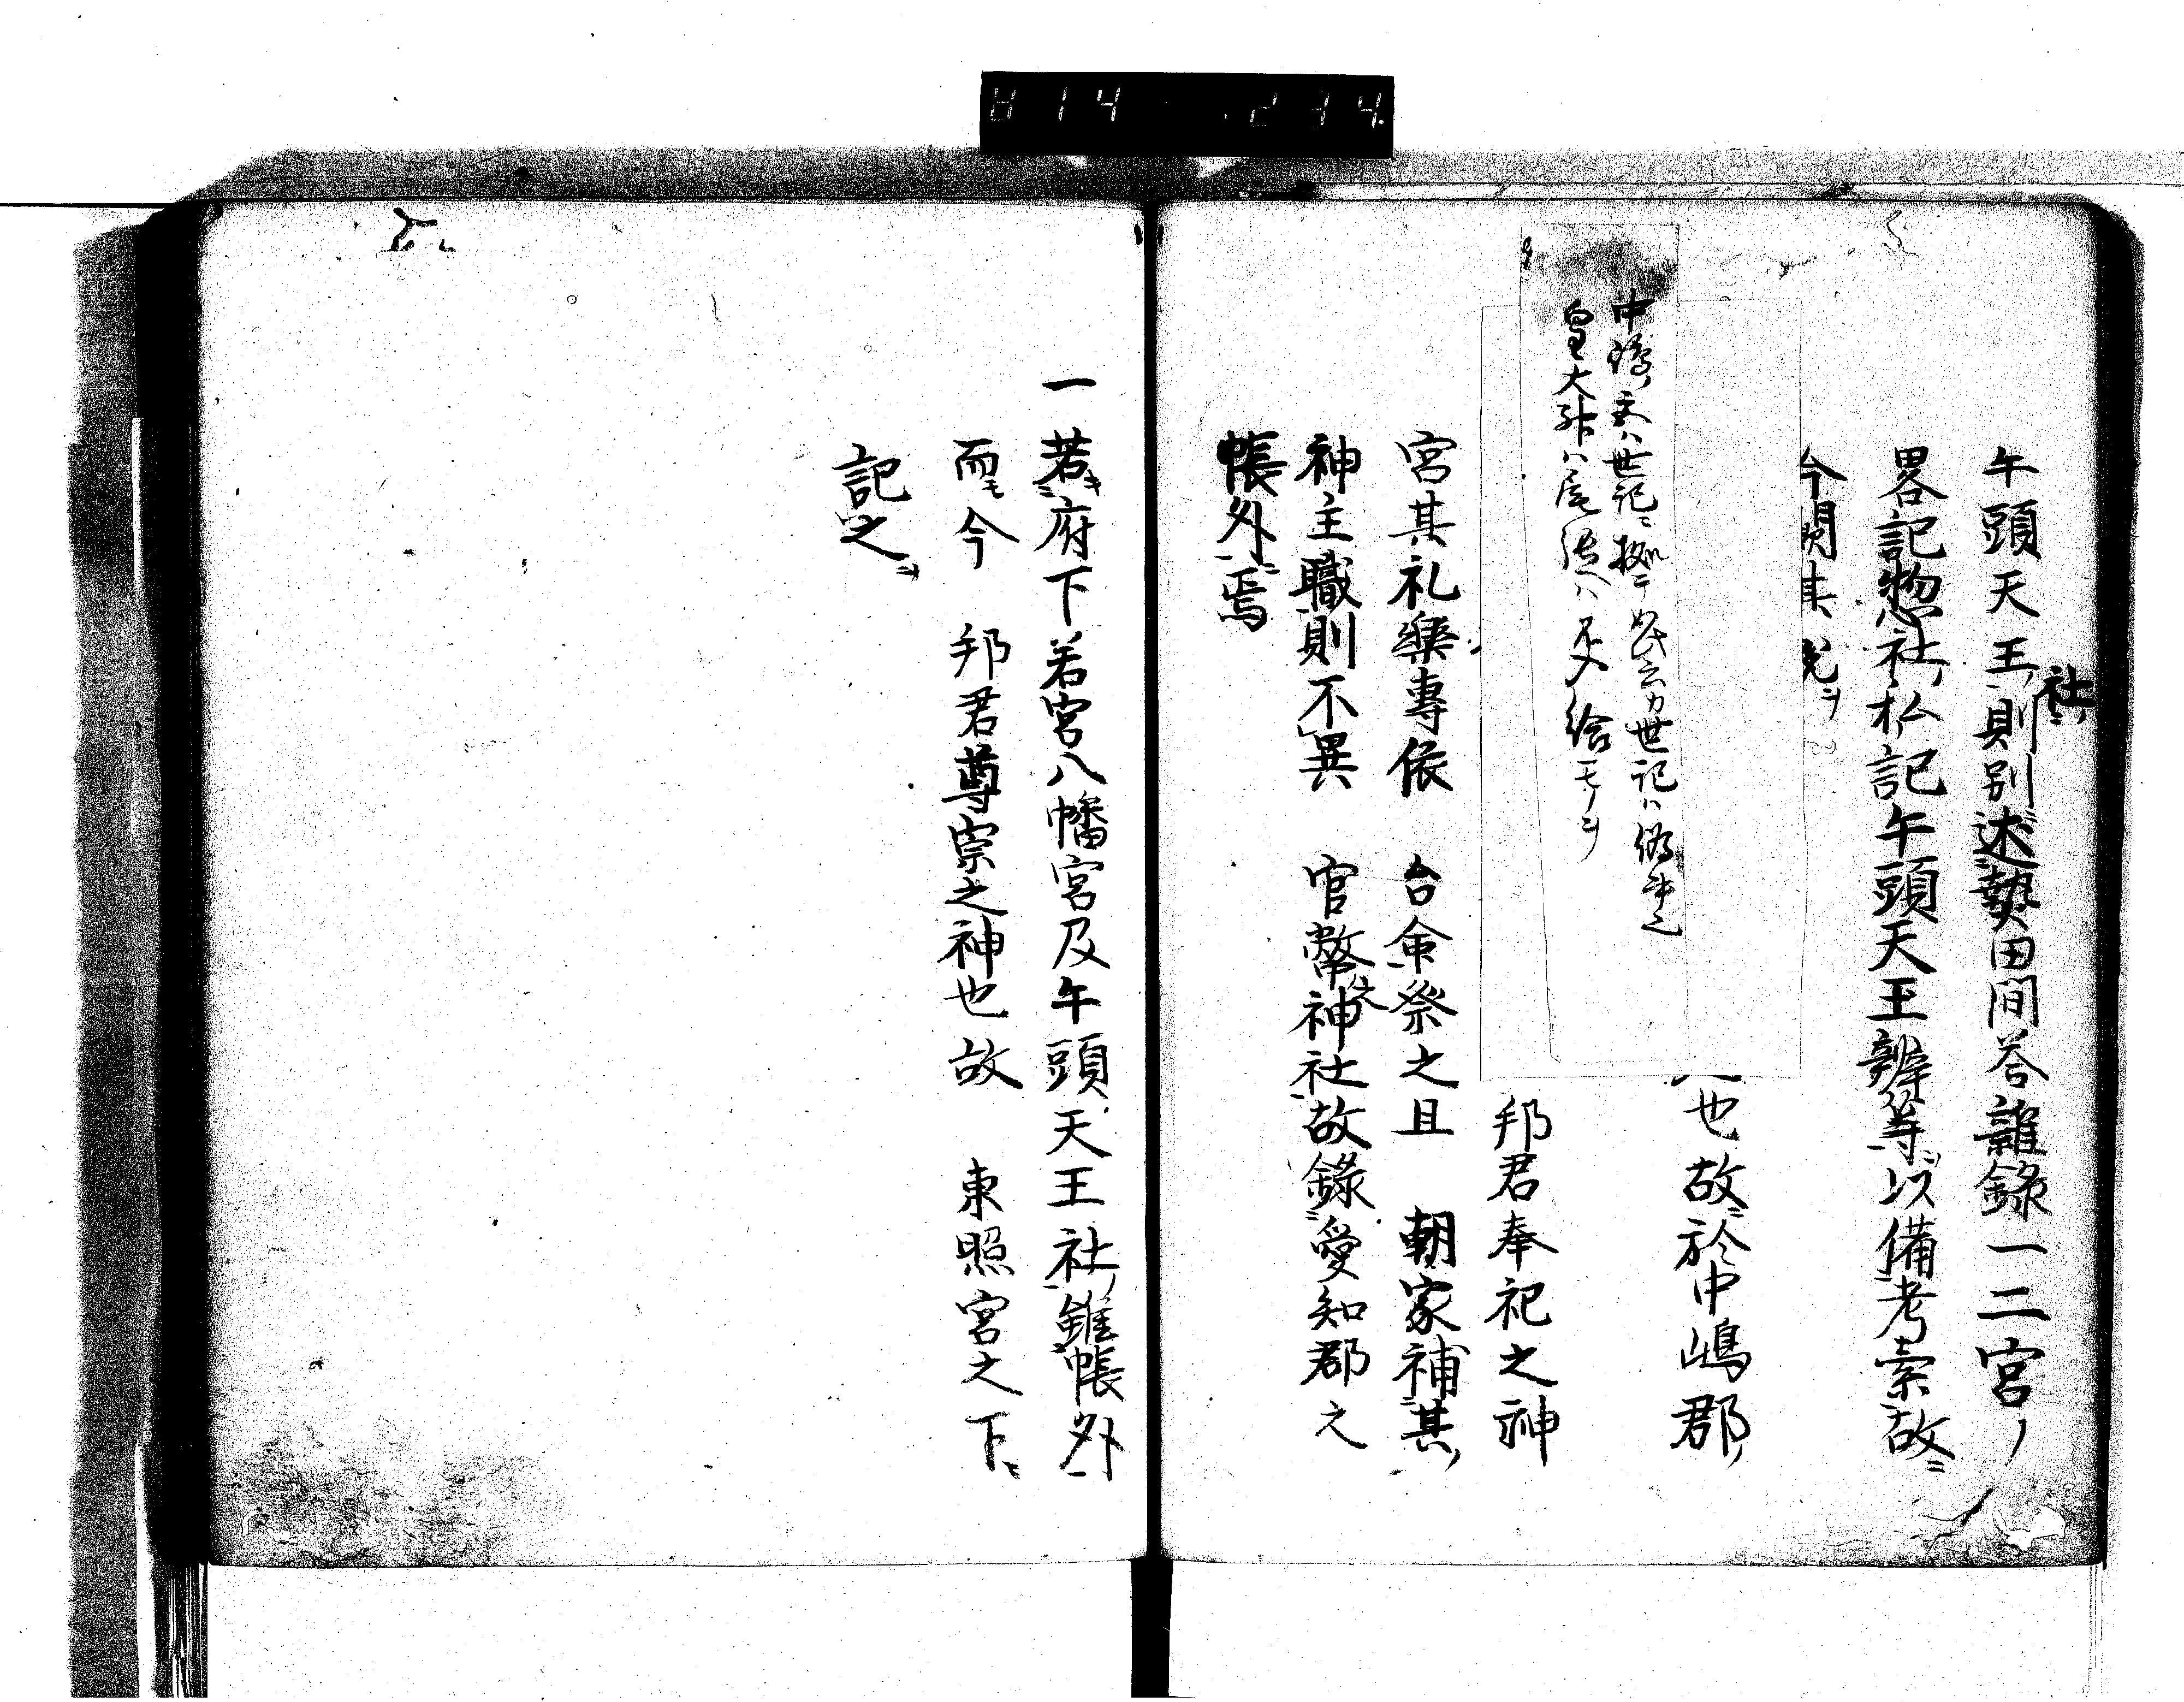 牛頭天王社則別述熱田問答雜錄一二宮ノ
畧記惣社私記牛頭天王辨等以備考索故ニ
今閒其説ヲ
也故ニ於中嶋郡
中嶋ノ宮ハ世記ニ拠テ
世記ハ偽書也
皇大神ハ尾張ヘハ不入給モノヲ
邦君奉祀之神
宮其礼樂專依　台命祭之且　朝家補其
神主職則不異　官幣大神社故錄愛知郡之
帳外焉
一若府下若宮八幡宮及牛頭天王社雖帳外
而今　邦君尊宗之神也故　東照宮之下ニ
記之ヲ